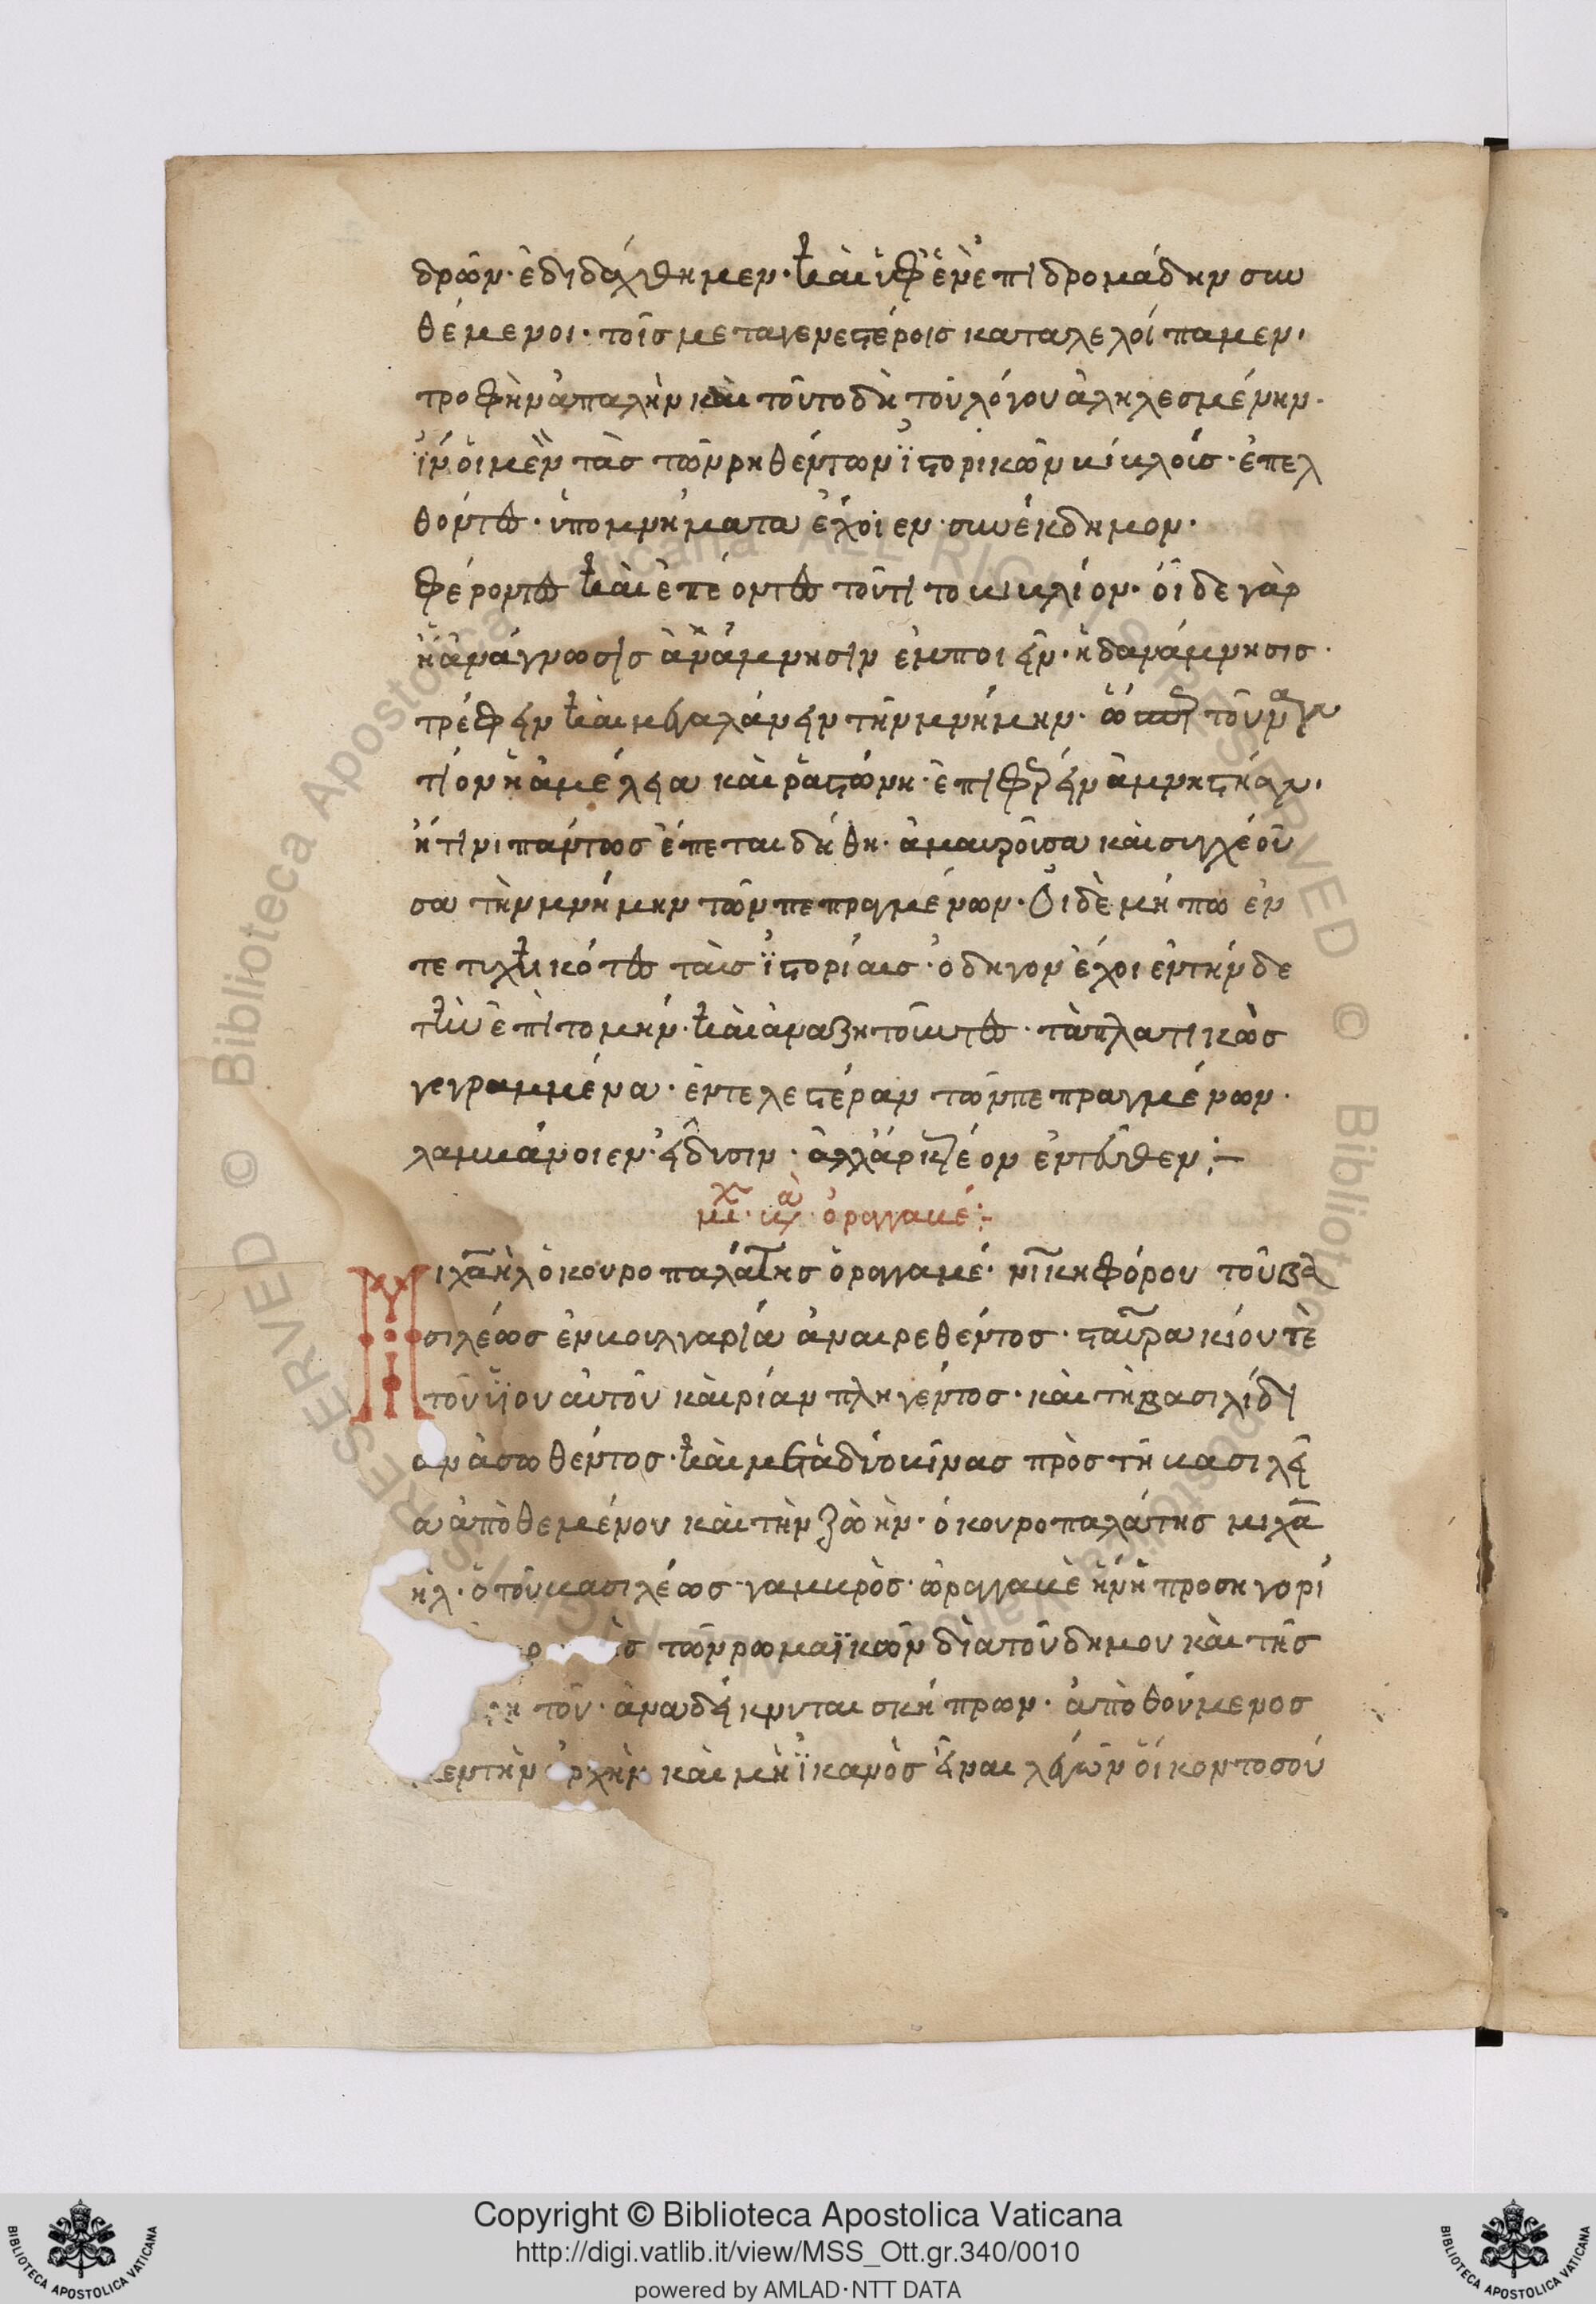 δρῶν· ἐδιδάχθημεν· καὶ ὑφ' ἓν ἐπιδρομάδην συν
θέμενοι· τοῖς μεταγενεστέροις καταλελοίπαμεν·
τροφὴν ἁπαλὴν καὶ τοῦτο δὴ τοῦ λόγου ἀληλεσμένην·
ἵν' οἱ μὲν τὰς τῶν ρηθέντων ἱστορικῶν κύκλοις· ἐπελ
θόντες· ὑπομνήματα ἔχοιεν· συνέκδημον·
φέροντες καὶ ἐπιόντες τουτὶ το βιβλίον· οἶδε γὰρ
ἡ ἀνάγνωσις ἀνάμνησιν ἐμποιεῖν· ἡ δ' ἀνάμνησις·
τρέφειν καὶ μεγαλύνειν τὴν μνήμην· ὥσπερ τοὐναν
τίον ἡ ἀμέλεια καὶ ραστώνη· ἐπιφέρειν ἀμνηστίαν·
ἥτινι πάντως ἕπεται λήθη· ἀμαυροῦσα καὶ συγχέου
σα τὴν μνήμην τῶν πεπραγμένων· Οἱ δὲ μήπω ἐν
τετυχηκότες ταῖς ἱστορίαις· ὁδηγὸν ἔχοιεν τήνδε
τὴν ἐπιτομήν· καὶ ἀναζητοῦντες· τὰ πλατικῶς
γεγραμμένα· ἐντελεστέραν τῶν πεπραγμένων·
λαμβάνοιεν· εἴδησιν· ἀλλ' ἀρκτέον ἐντεῦθεν:—
μιχ· βα· ὁ ραγγαβέ:—
Μιχαὴλ ὁ κουροπαλάτης ὁ ραγγαβέ· νικηφόρου τοῦ βα
σιλέως ἐν βουλγαρία ἀναιρεθέντος· σταυρακίου τὲ
τοῦ υἱοῦ αὐτοῦ καιρίαν πληγέντος· καὶ τῆ βασιλίδι
ἀνασωθέντος· καὶ μετὰ δύο μῆνας πρὸς τῆ βασιλεί
α ἀποθεμένου καὶ τὴν ζωὴν· ὁ κουροπαλάτης μιχα
ὴλ· ὁ τοῦ βασιλέως γαμβρὸς· ὧ ραγγαβὲ ἦν ἡ προσηγορί
τῶν ρωμαϊκῶν διὰ τοῦ δήμου καὶ τῆς
του· ἀναδείκνυται σκήπρων· ἀπωθούμενος
μὲν τὴν ἀρχὴν καὶ μὴ ἱκανὸς εἶναι λέγων ὄγκον τοσού